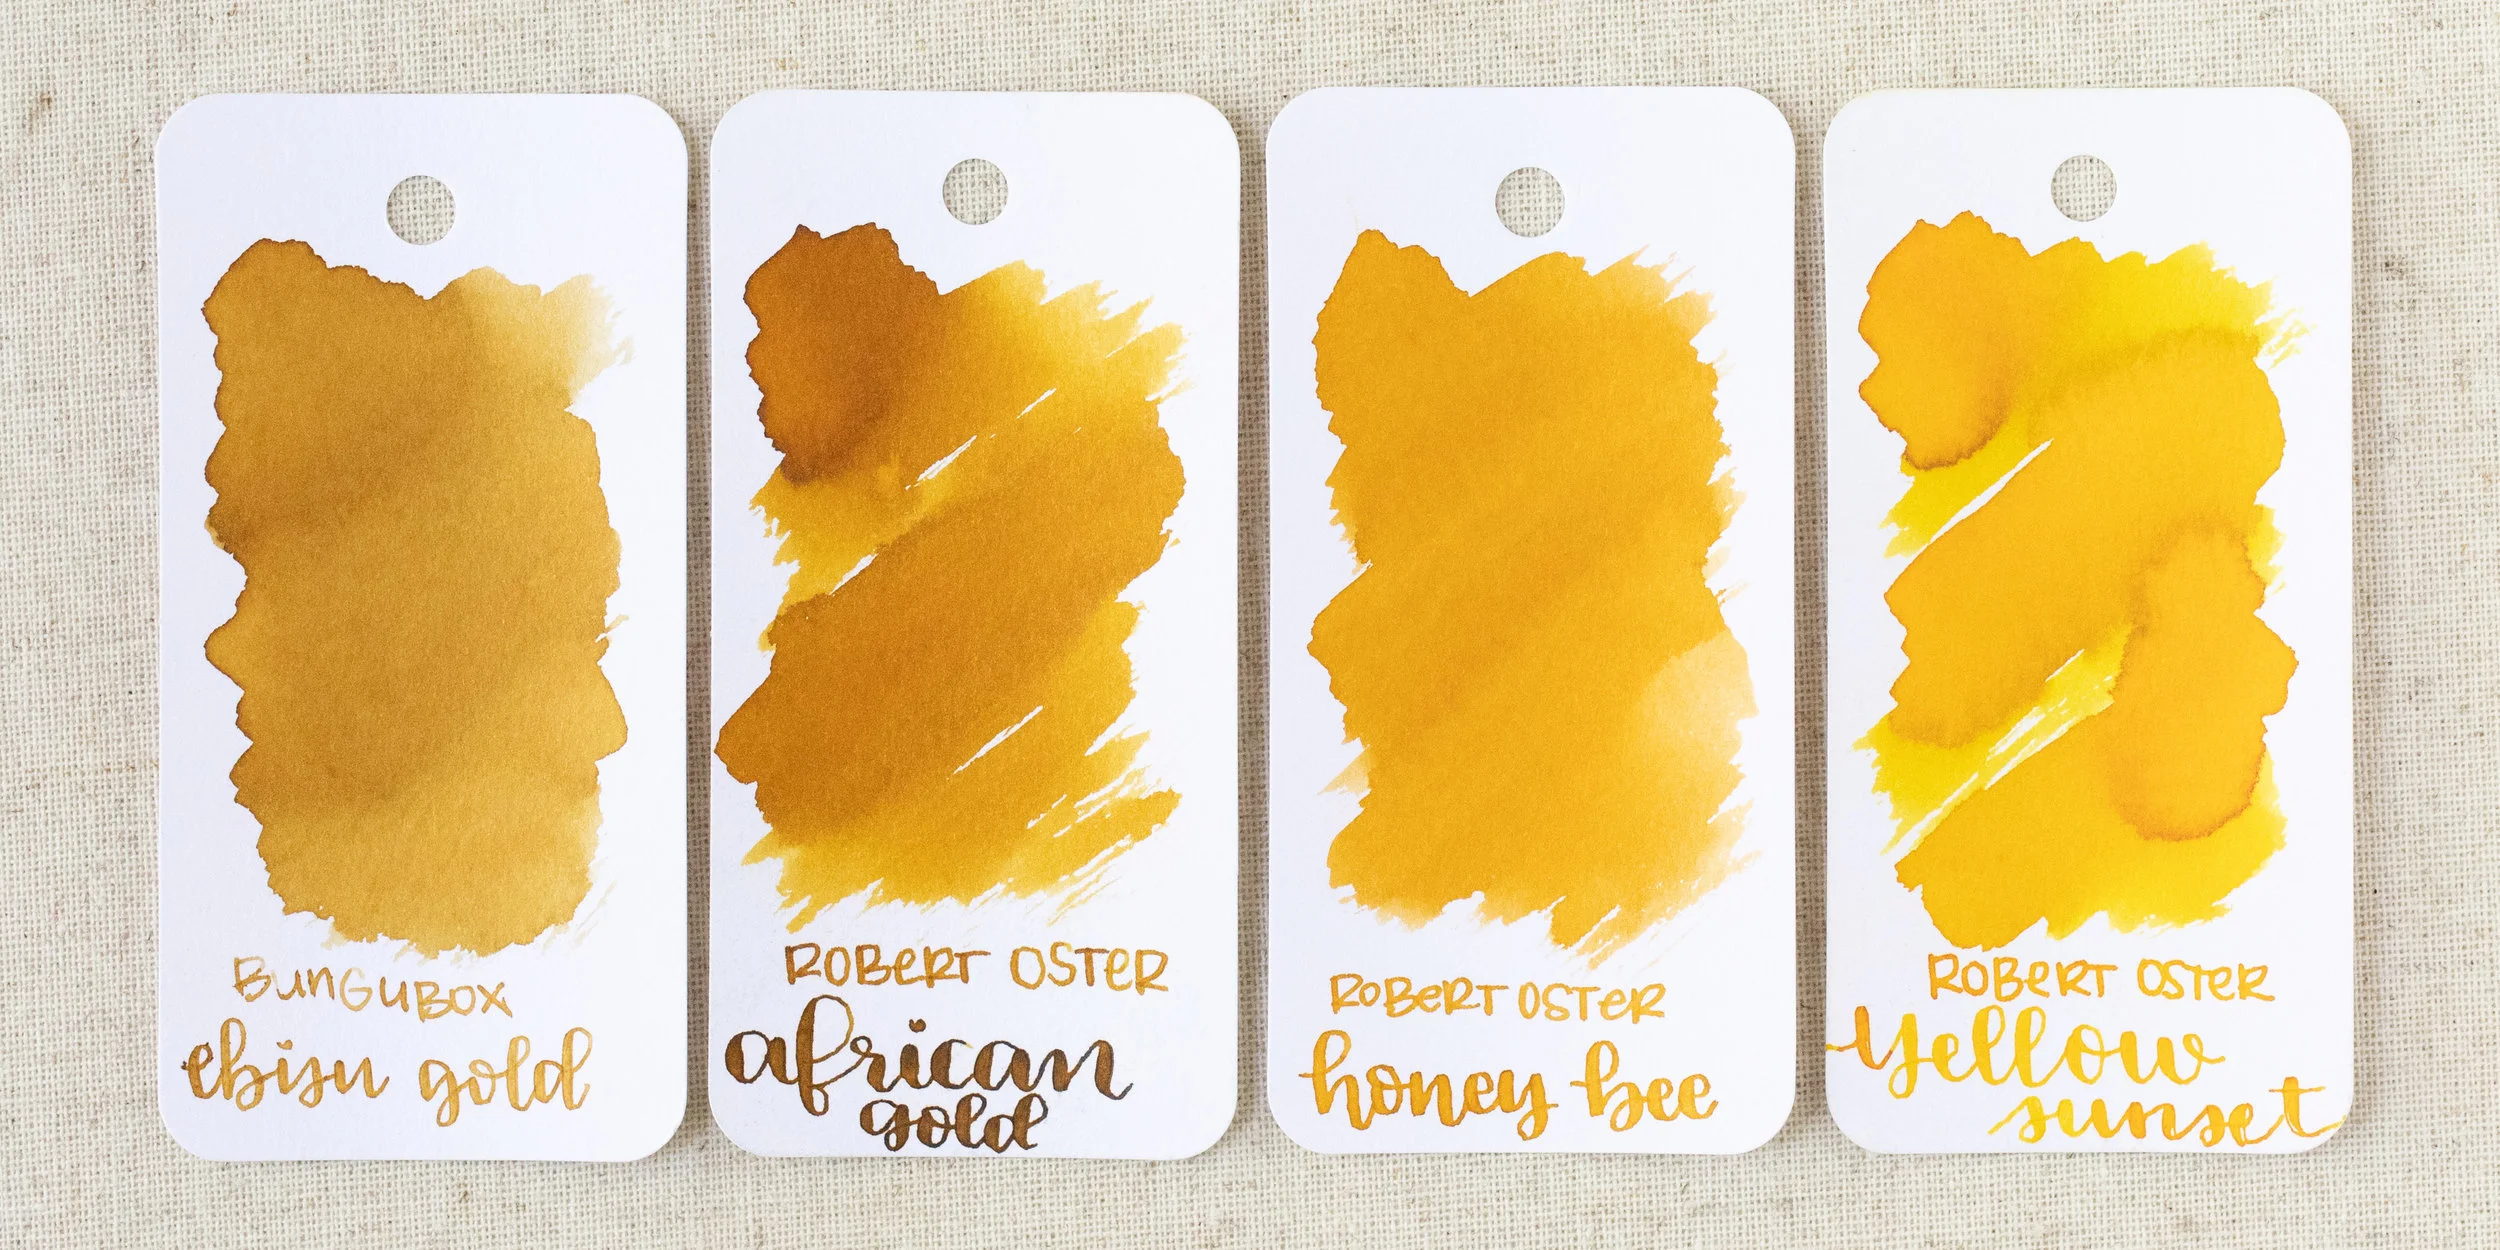 BunGuBox
ebisu gold
ROBERT OSTER
african
gold
ROBERT OSTER
honey bee
ROBERT OSTER
yellow
sunset